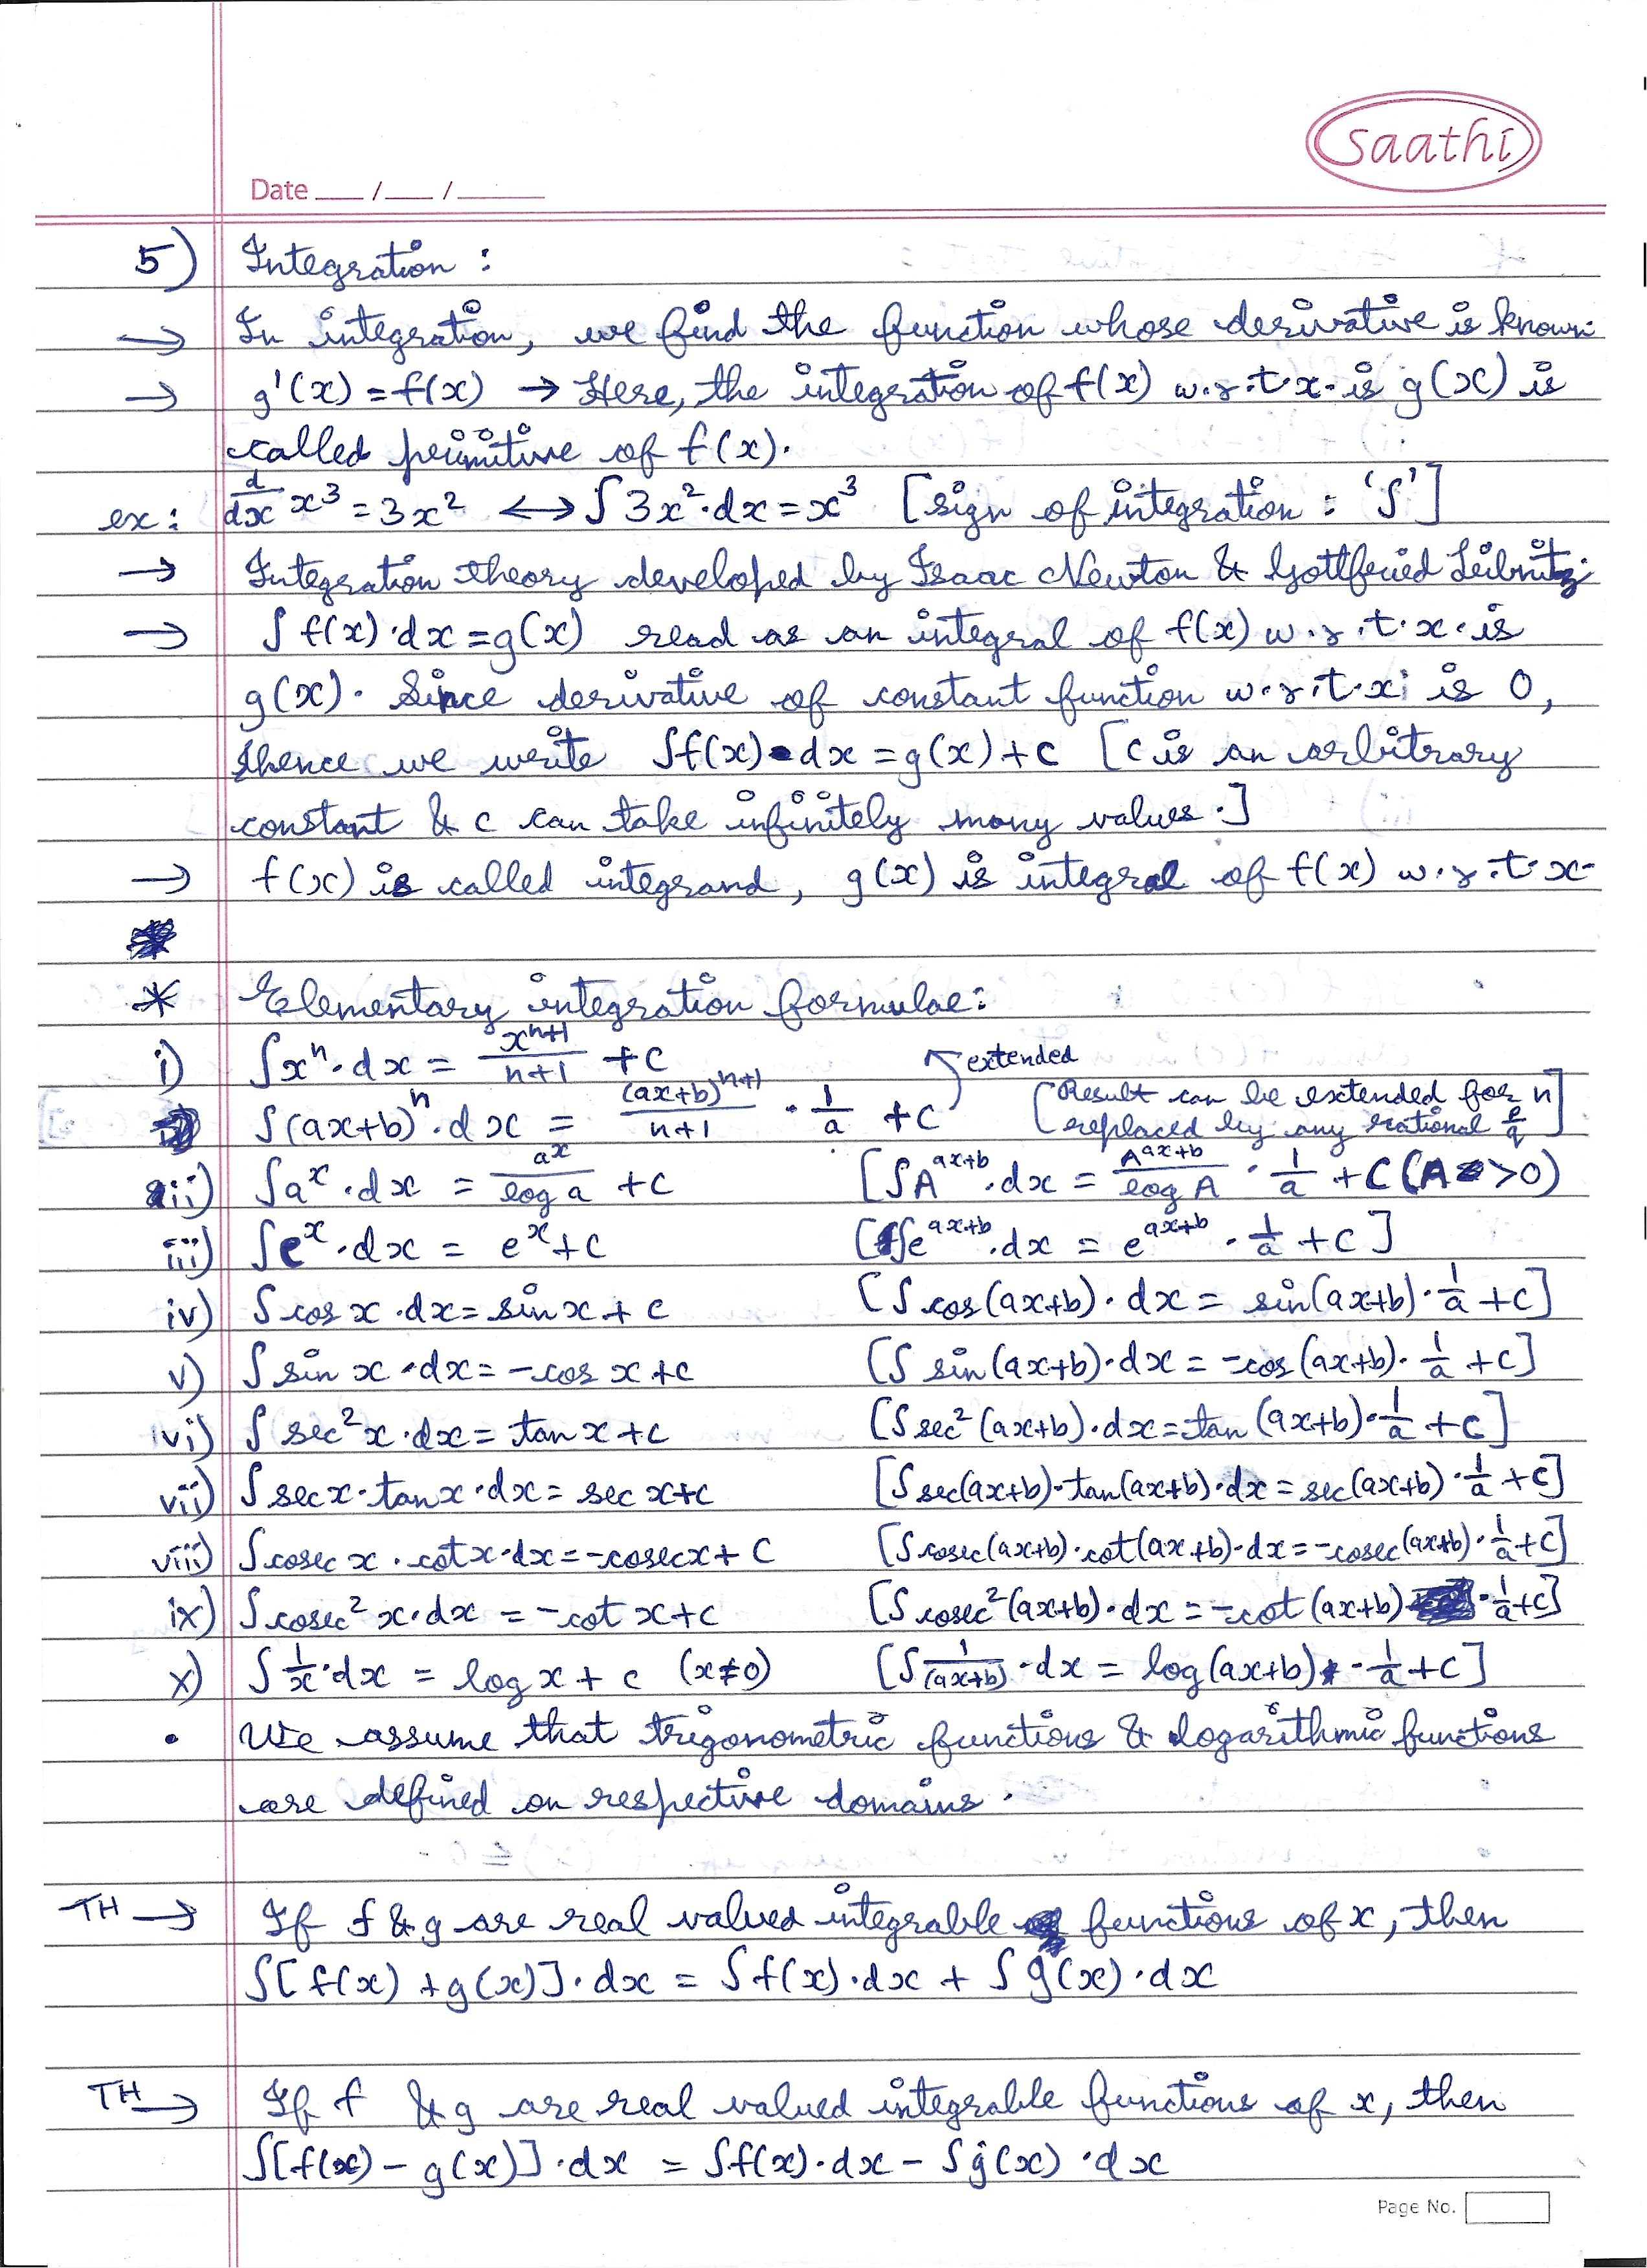 saathi
Date ___/___/_____
5) Integration :
→ In integration, we find the function whose derivative is known.
→ g'(x) = f(x) → Here, the integration of f(x) w.r.t. x. is g(x) is
called primitive of f(x).
ex: d/dx x³ = 3x² ↔ ∫3x²·dx = x³ [sign of integration : '∫']
→ Integration theory developed by Isaac Newton & Gottfried Leibnitz.
→ ∫f(x)·dx = g(x) read as an integral of f(x) w.r.t. x. is
g(x). Since derivative of constant function w.r.t. x is 0,
hence we write ∫f(x)·dx = g(x)+c [c is an arbitrary
constant & c can take infinitely many values.]
→ f(x) is called integrand, g(x) is integral of f(x) w.r.t. x.
* Elementary integration formulae:
i) ∫xⁿ·dx = xⁿ⁺¹/n+1 + c ↖ extended
∫(ax+b)ⁿ·dx = (ax+b)ⁿ⁺¹/n+1 · 1/a + c [Result can be extended for n replaced by any rational p/q]
ii) ∫aˣ·dx = aˣ/log a + c [∫A^(ax+b)·dx = A^(ax+b)/log A · 1/a + c (A>0)
iii) ∫eˣ·dx = eˣ+c [∫e^(ax+b)·dx = e^(ax+b) · 1/a + c]
iv) ∫cos x·dx = sin x + c [∫cos(ax+b)·dx = sin(ax+b)·1/a + c]
v) ∫sin x·dx = -cos x + c [∫sin(ax+b)·dx = -cos(ax+b)·1/a + c]
vi) ∫sec²x·dx = tan x + c [∫sec²(ax+b)·dx = tan(ax+b)·1/a + c]
vii) ∫sec x·tan x·dx = sec x + c [∫sec(ax+b)·tan(ax+b)·dx = sec(ax+b)·1/a + c]
viii) ∫cosec x·cot x·dx = -cosec x + c [∫cosec(ax+b)·cot(ax+b)·dx = -cosec(ax+b)·1/a + c]
ix) ∫cosec²x·dx = -cot x + c [∫cosec²(ax+b)·dx = -cot(ax+b)·1/a + c]
x) ∫1/x·dx = log x + c (x≠0) [∫1/(ax+b)·dx = log(ax+b)·1/a + c]
• We assume that trigonometric functions & logarithmic functions
are defined on respective domains.
TH → If f & g are real valued integrable functions of x, then
∫[f(x) + g(x)]·dx = ∫f(x)·dx + ∫g(x)·dx
TH → If f & g are real valued integrable functions of x, then
∫[f(x) - g(x)]·dx = ∫f(x)·dx - ∫g(x)·dx
Page No.